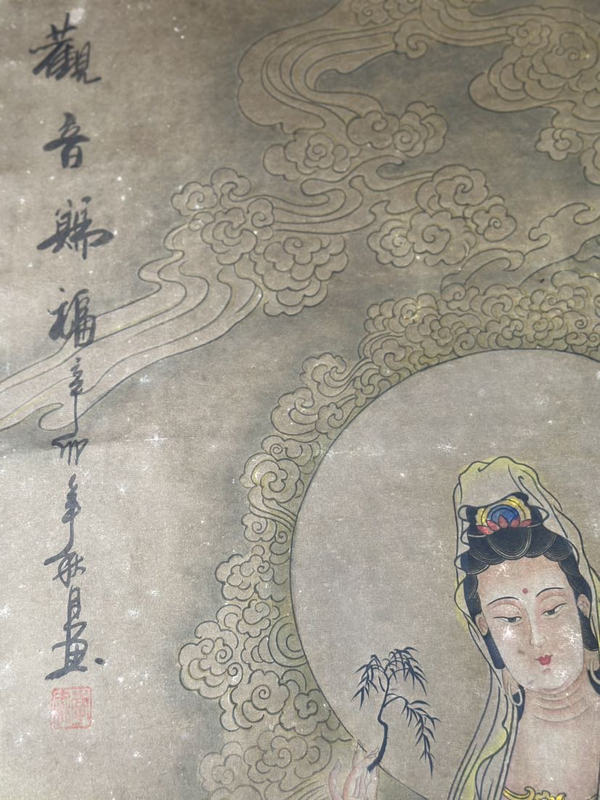 觀音賜福辛卯年秋月画